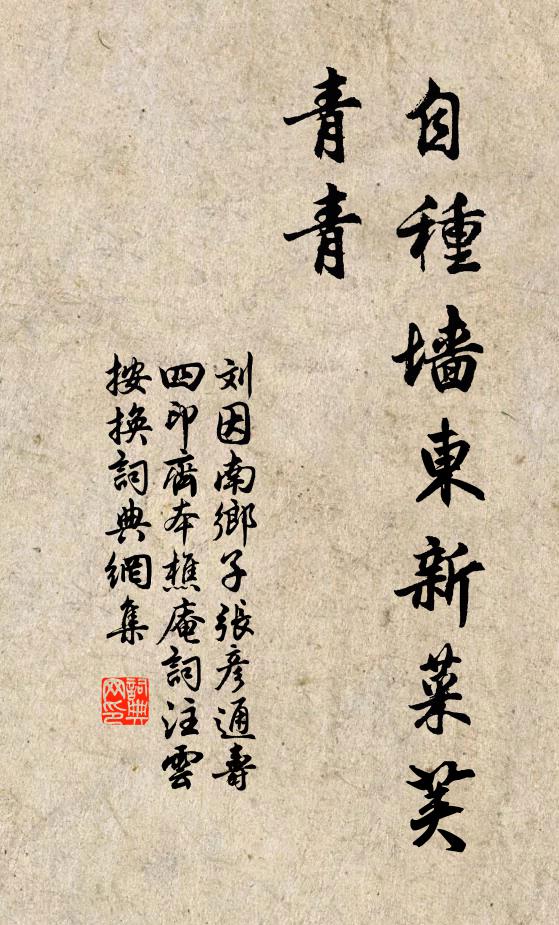 自種墻東新菜荚
青青
刘因南鄉子張彦通壽
四印齋本樵庵詞注雲
按换詞典網集
詞典網印